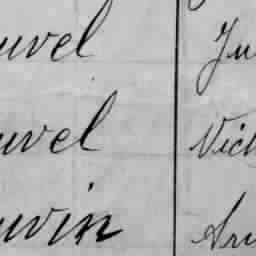 uvel Ju
uvel Vict
uvin Aru